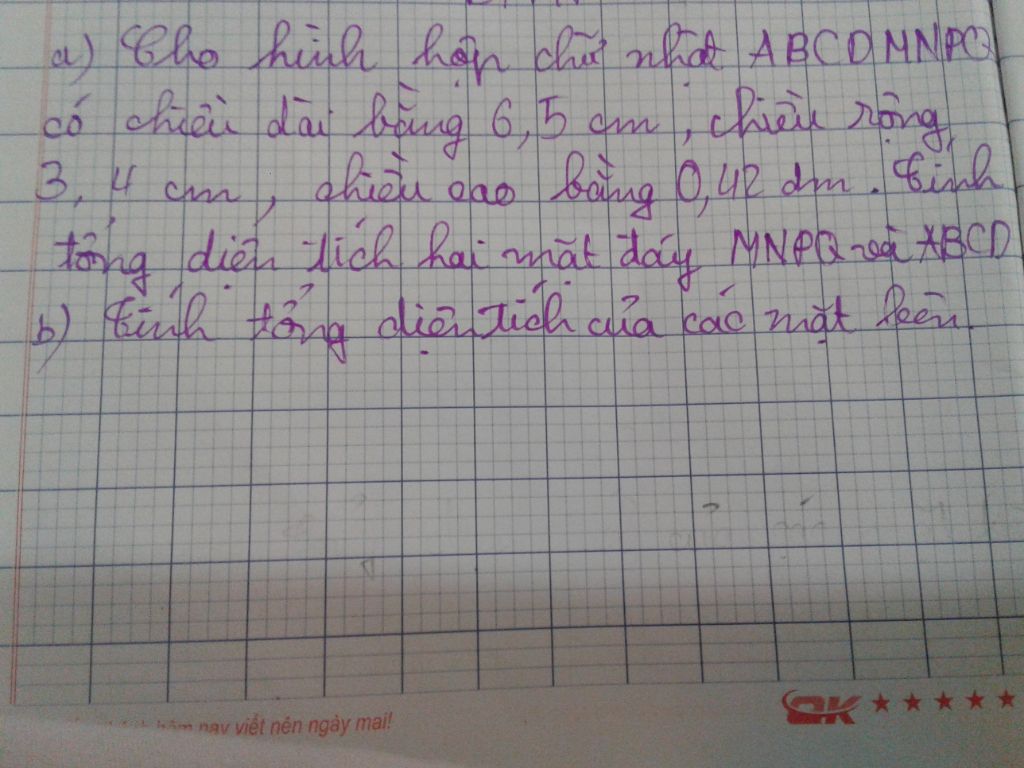 a) Cho hình hộp chữ nhật ABCDMNPQ
có chiều dài bằng 6,5 cm, chiều rộng
3,4 cm, chiều cao bằng 0,42 dm. Tính
tổng diện tích hai mặt đáy MNPQ và ABCD
b) Tính tổng diện tích của các mặt bên
nay viết nên ngày mai!
QK